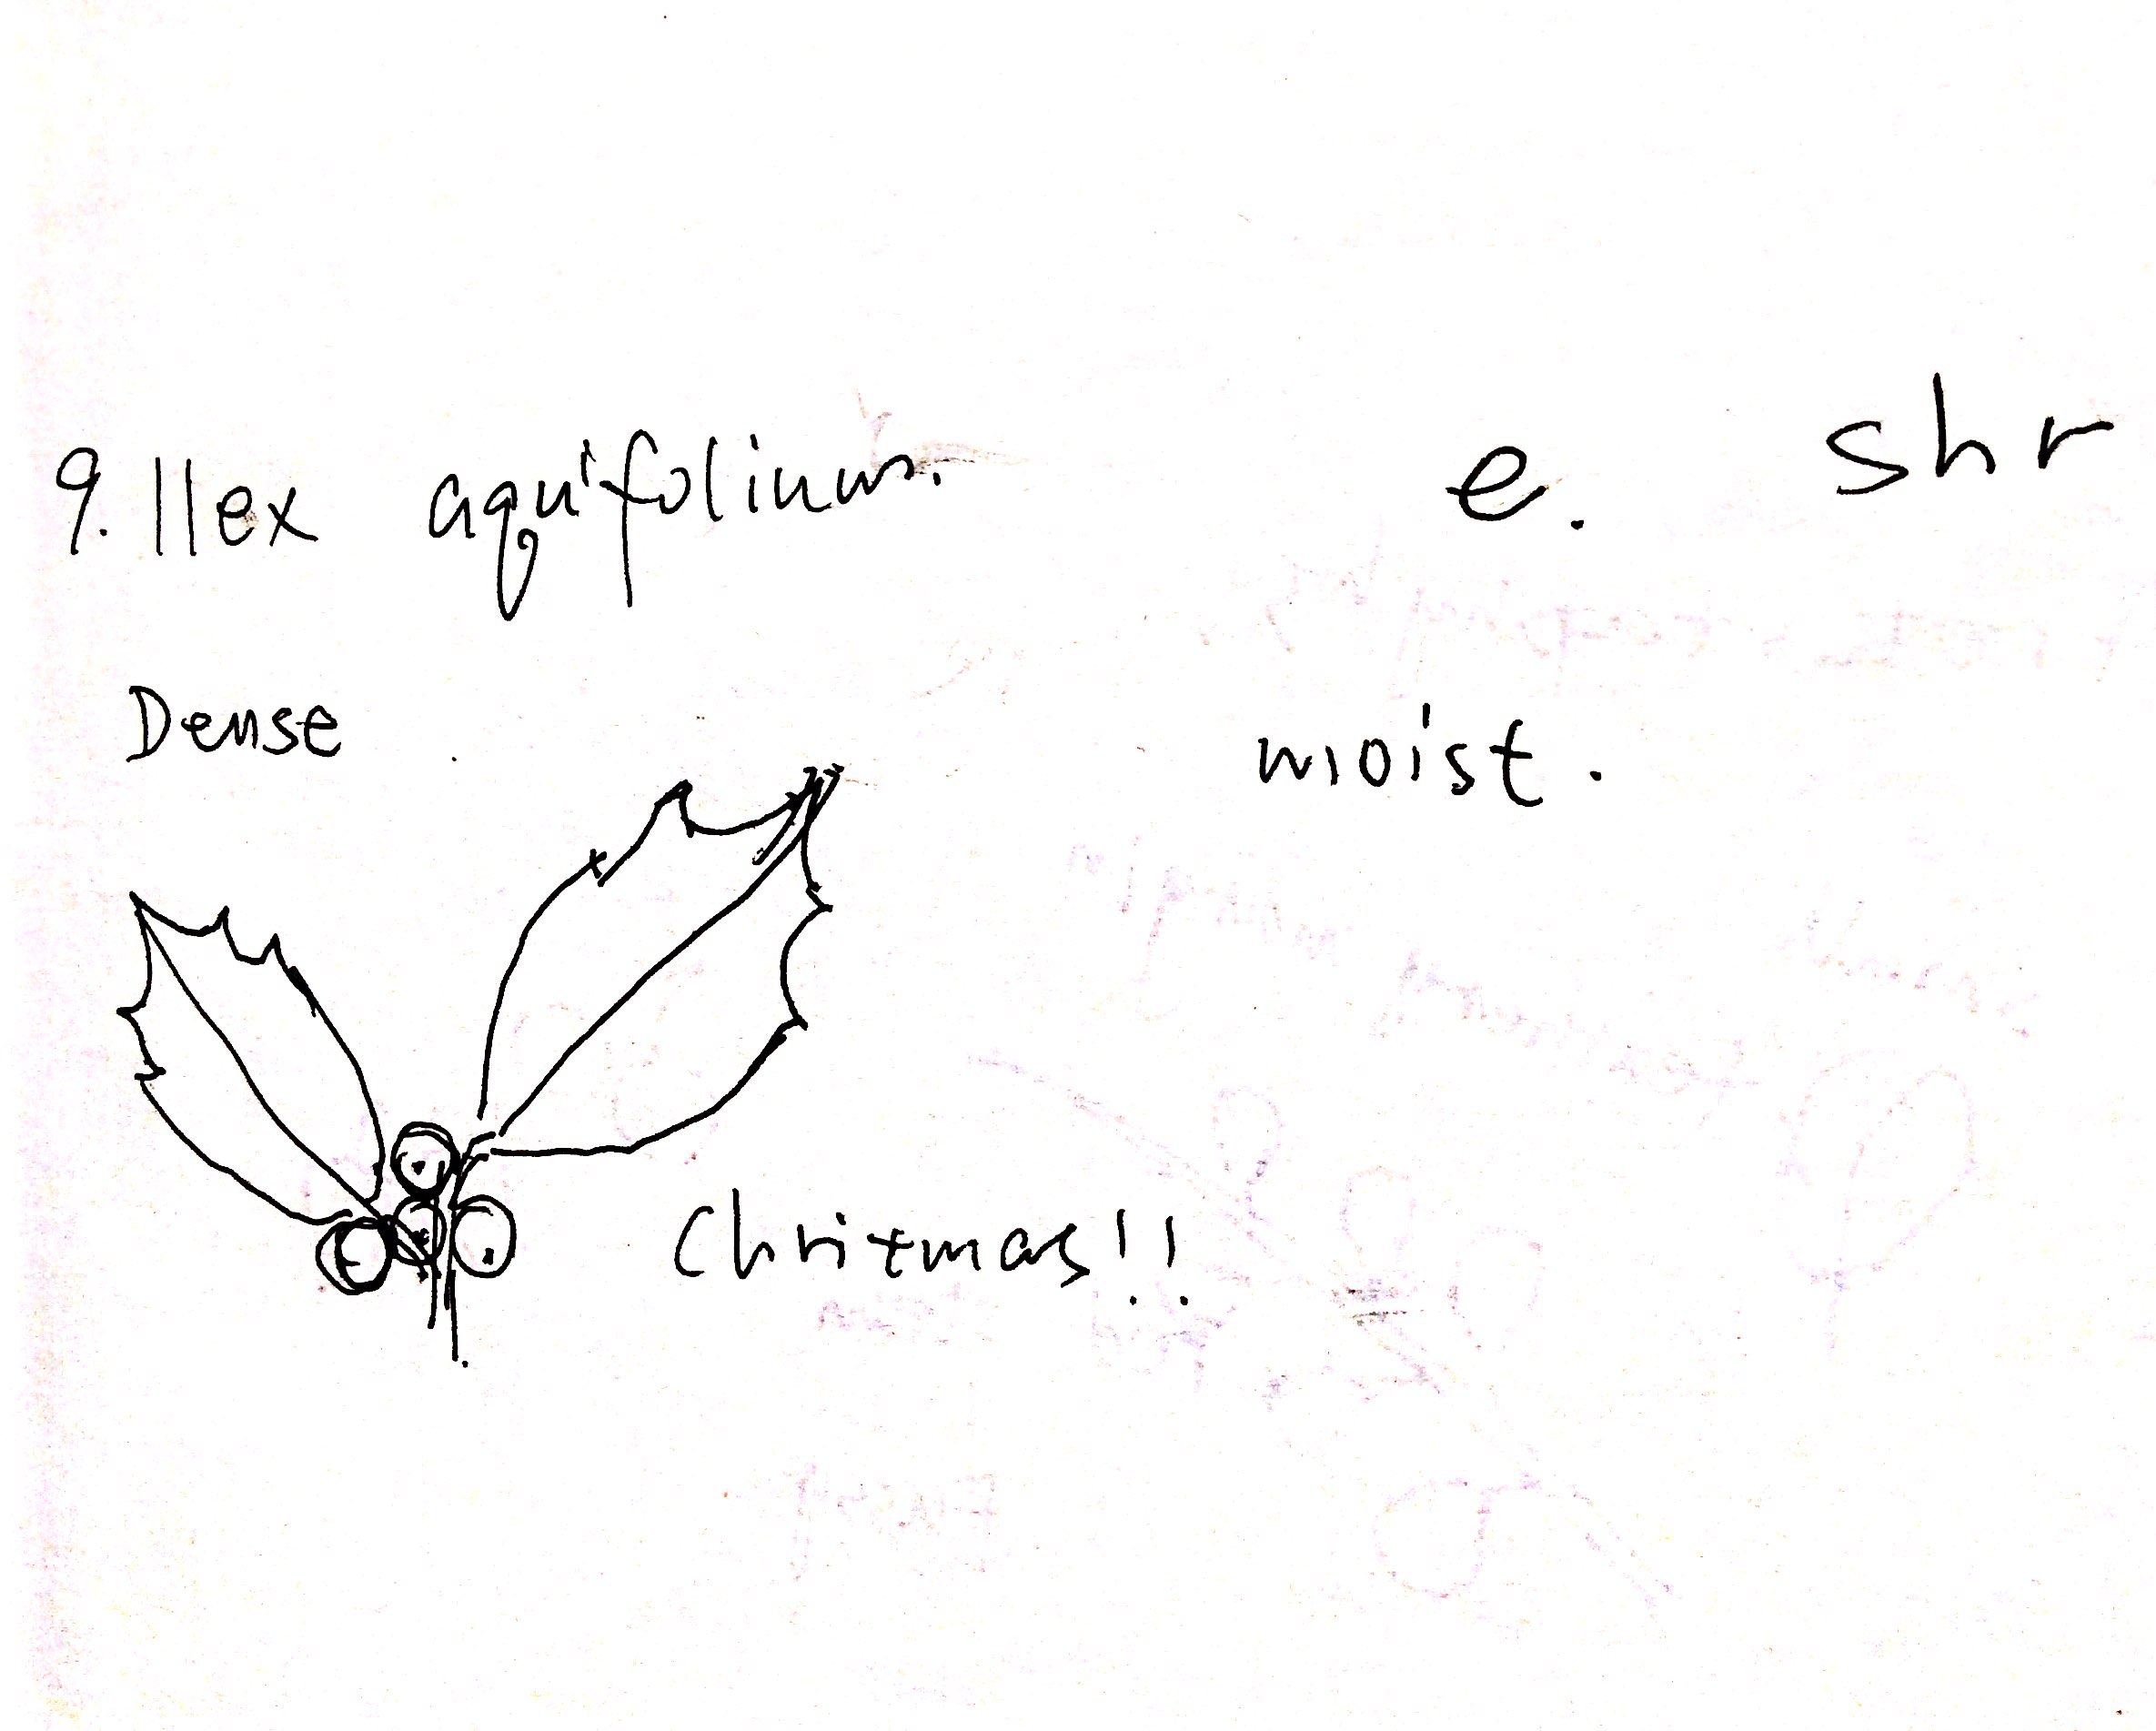 9. Ilex aquifolium. e. shr
Dense moist.
Chritmas!!